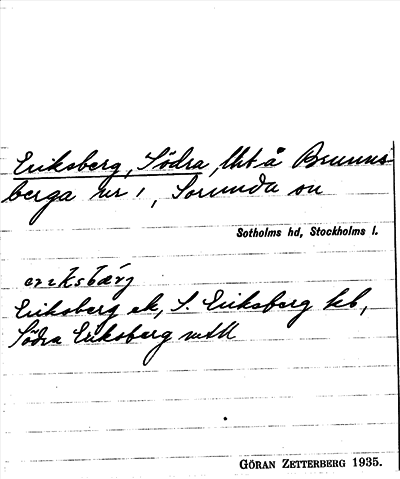 Eriksberg, Södra, lht å Brunns-
berga nr 1, Sorunda sn
Sotholms hd, Stockholms l.
Eriksberg ek, S. Eriksberg kb,
Södra Eriksberg
GÖRAN ZETTERBERG 1935.